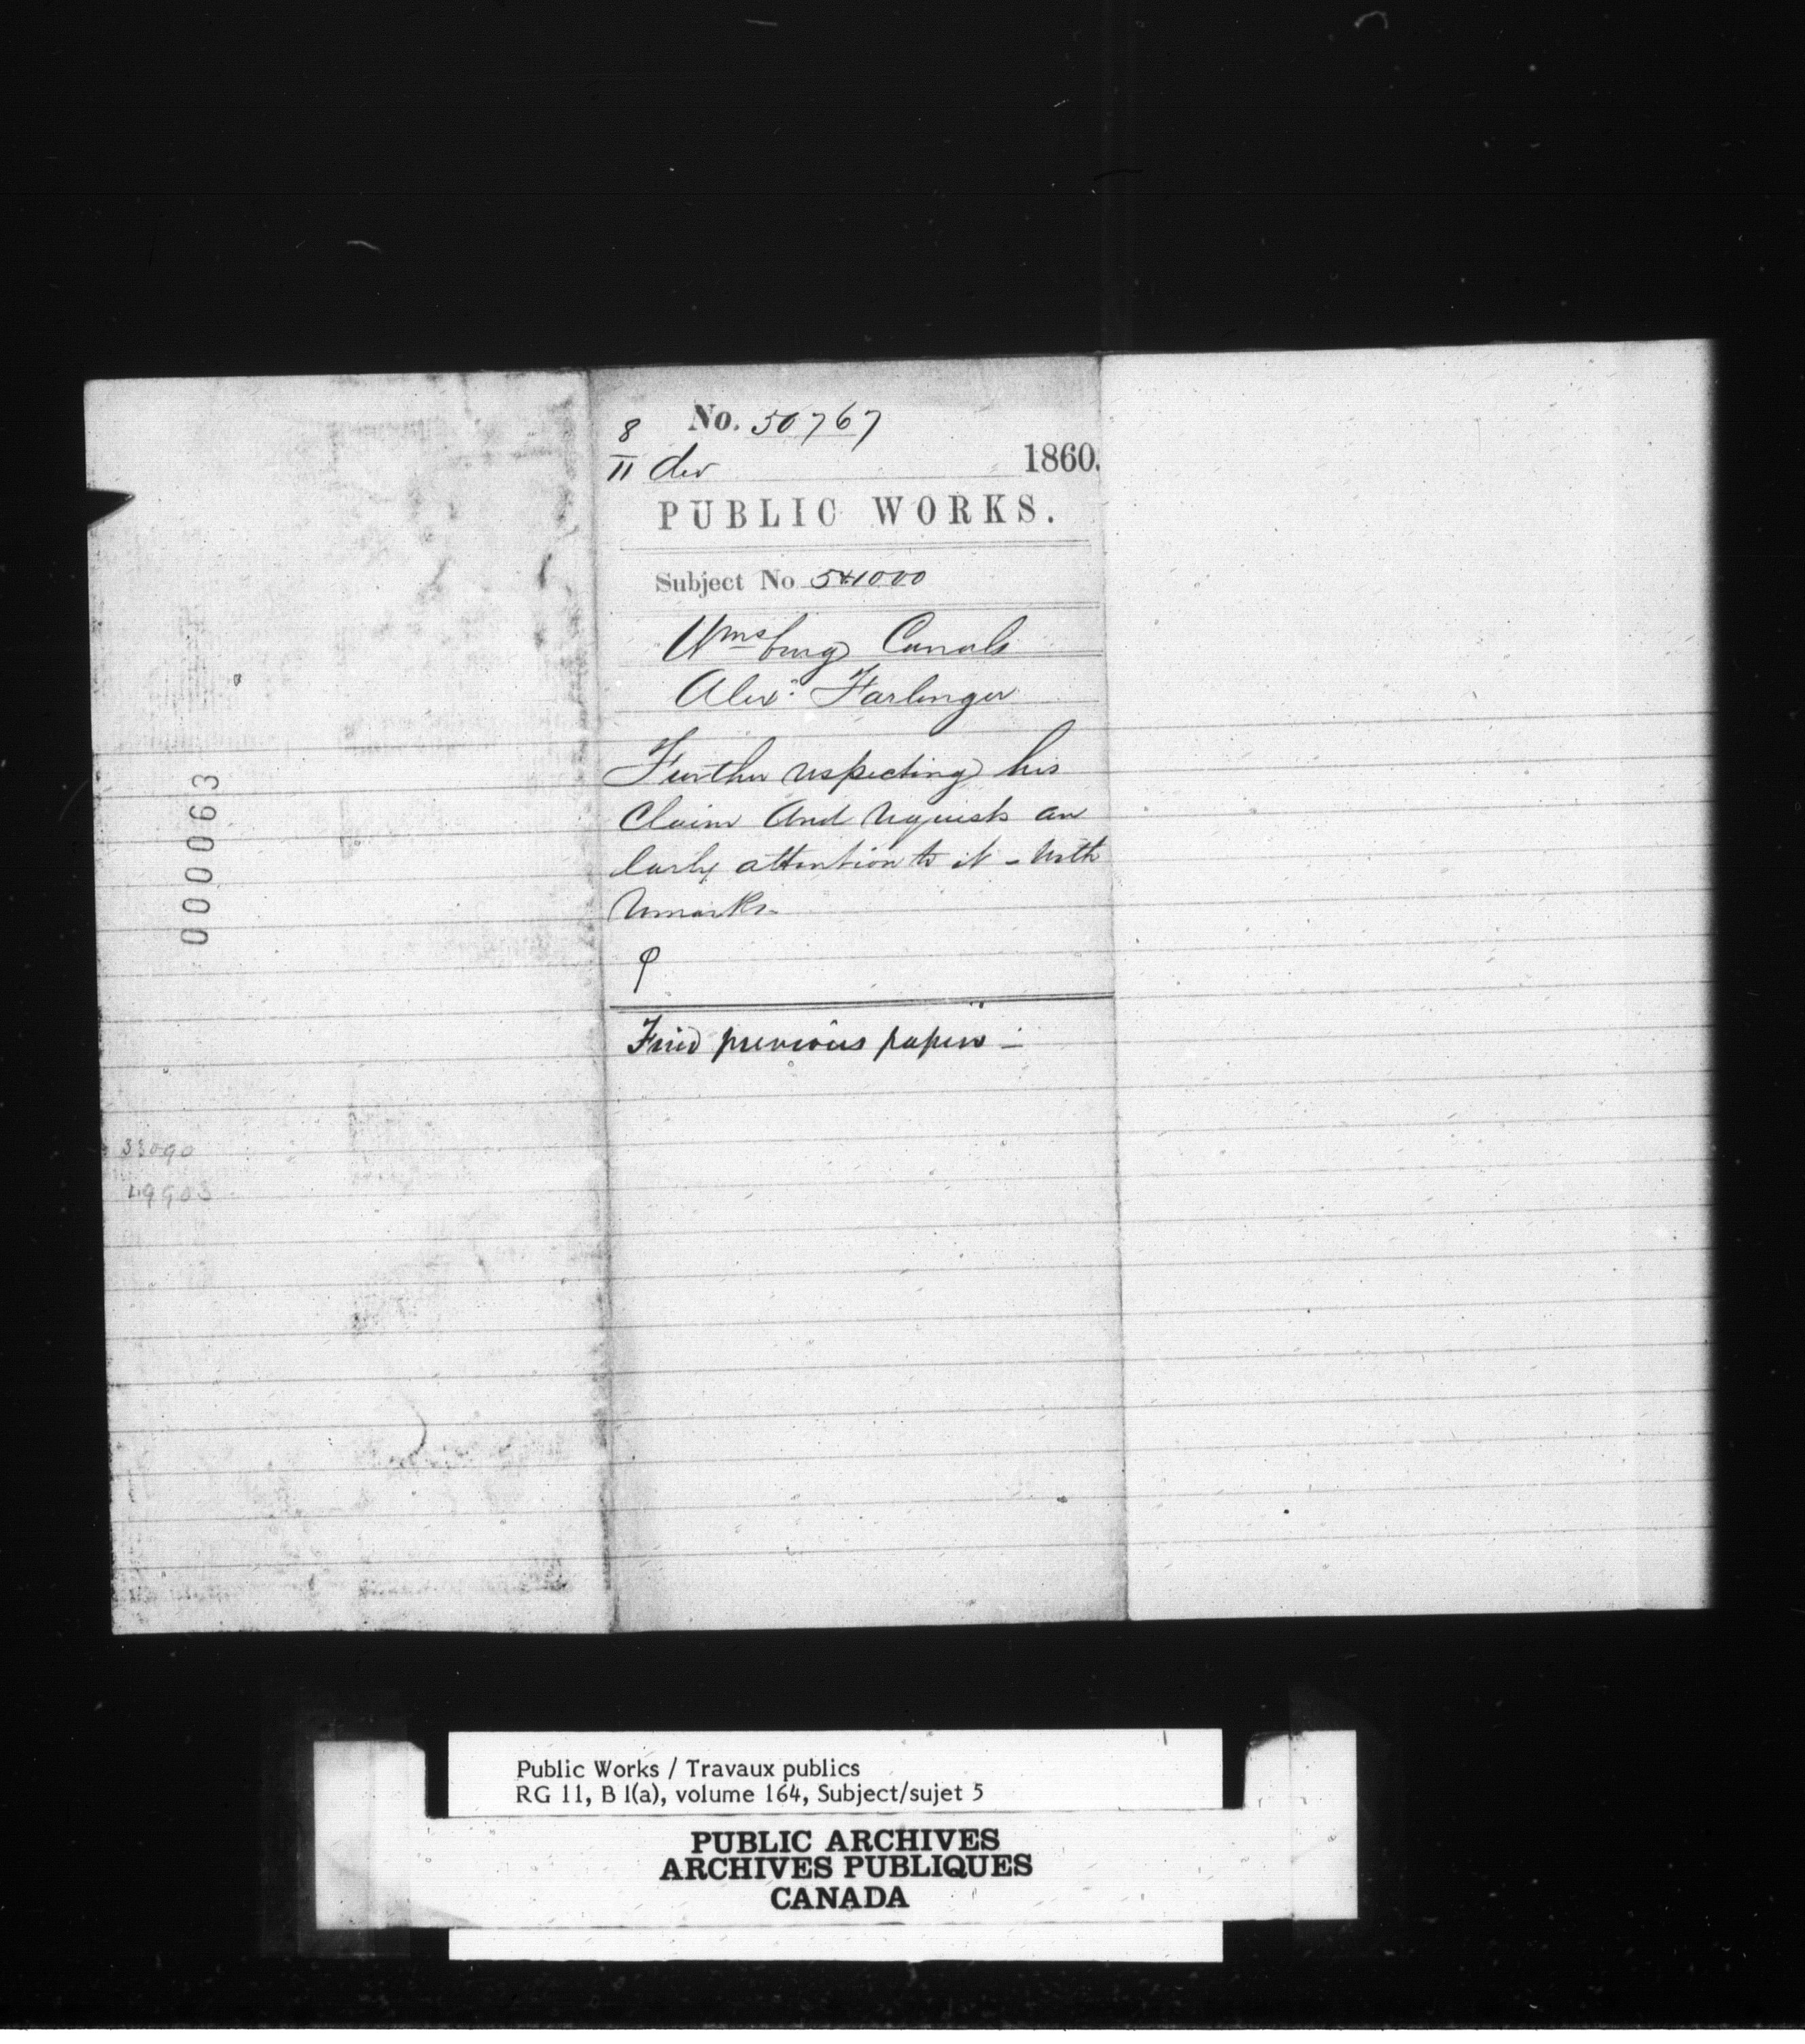 No. 50767
8
11 dec 1860.
PUBLIC WORKS.
Subject No 541000
Wms burg Canals
Alexr. Farlinger
Further respecting his
Claim And requests an
early attention to it - With
remarks.
Find previous papers -
000063
33090
49903
Public Works / Travaux publics
RG 11, B 1(a), volume 164, Subject/sujet 5
PUBLIC ARCHIVES
ARCHIVES PUBLIQUES
CANADA